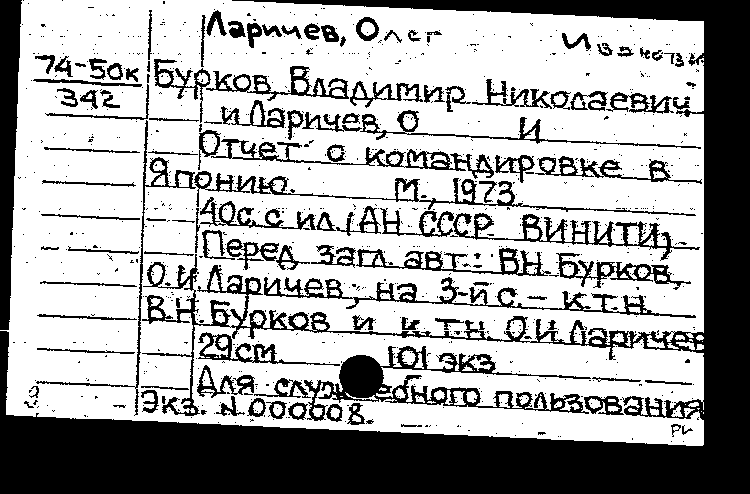 Ларичев, Олег Иванович
74-50к Бурков, Владимир Николаевич
342 и Ларичев, О И
Отчет о командировке в
Японию. М., 1973.
40с. с ил. (АН СССР ВИНИТИ)
Перед загл. авт.: В.Н. Бурков,
О.И. Ларичев; на 3-й с. – к.т.н.
В.Н. Бурков и к.т.н. О.И. Ларичев
29см. 101 экз
Для служебного пользования
Экз. N 000008.